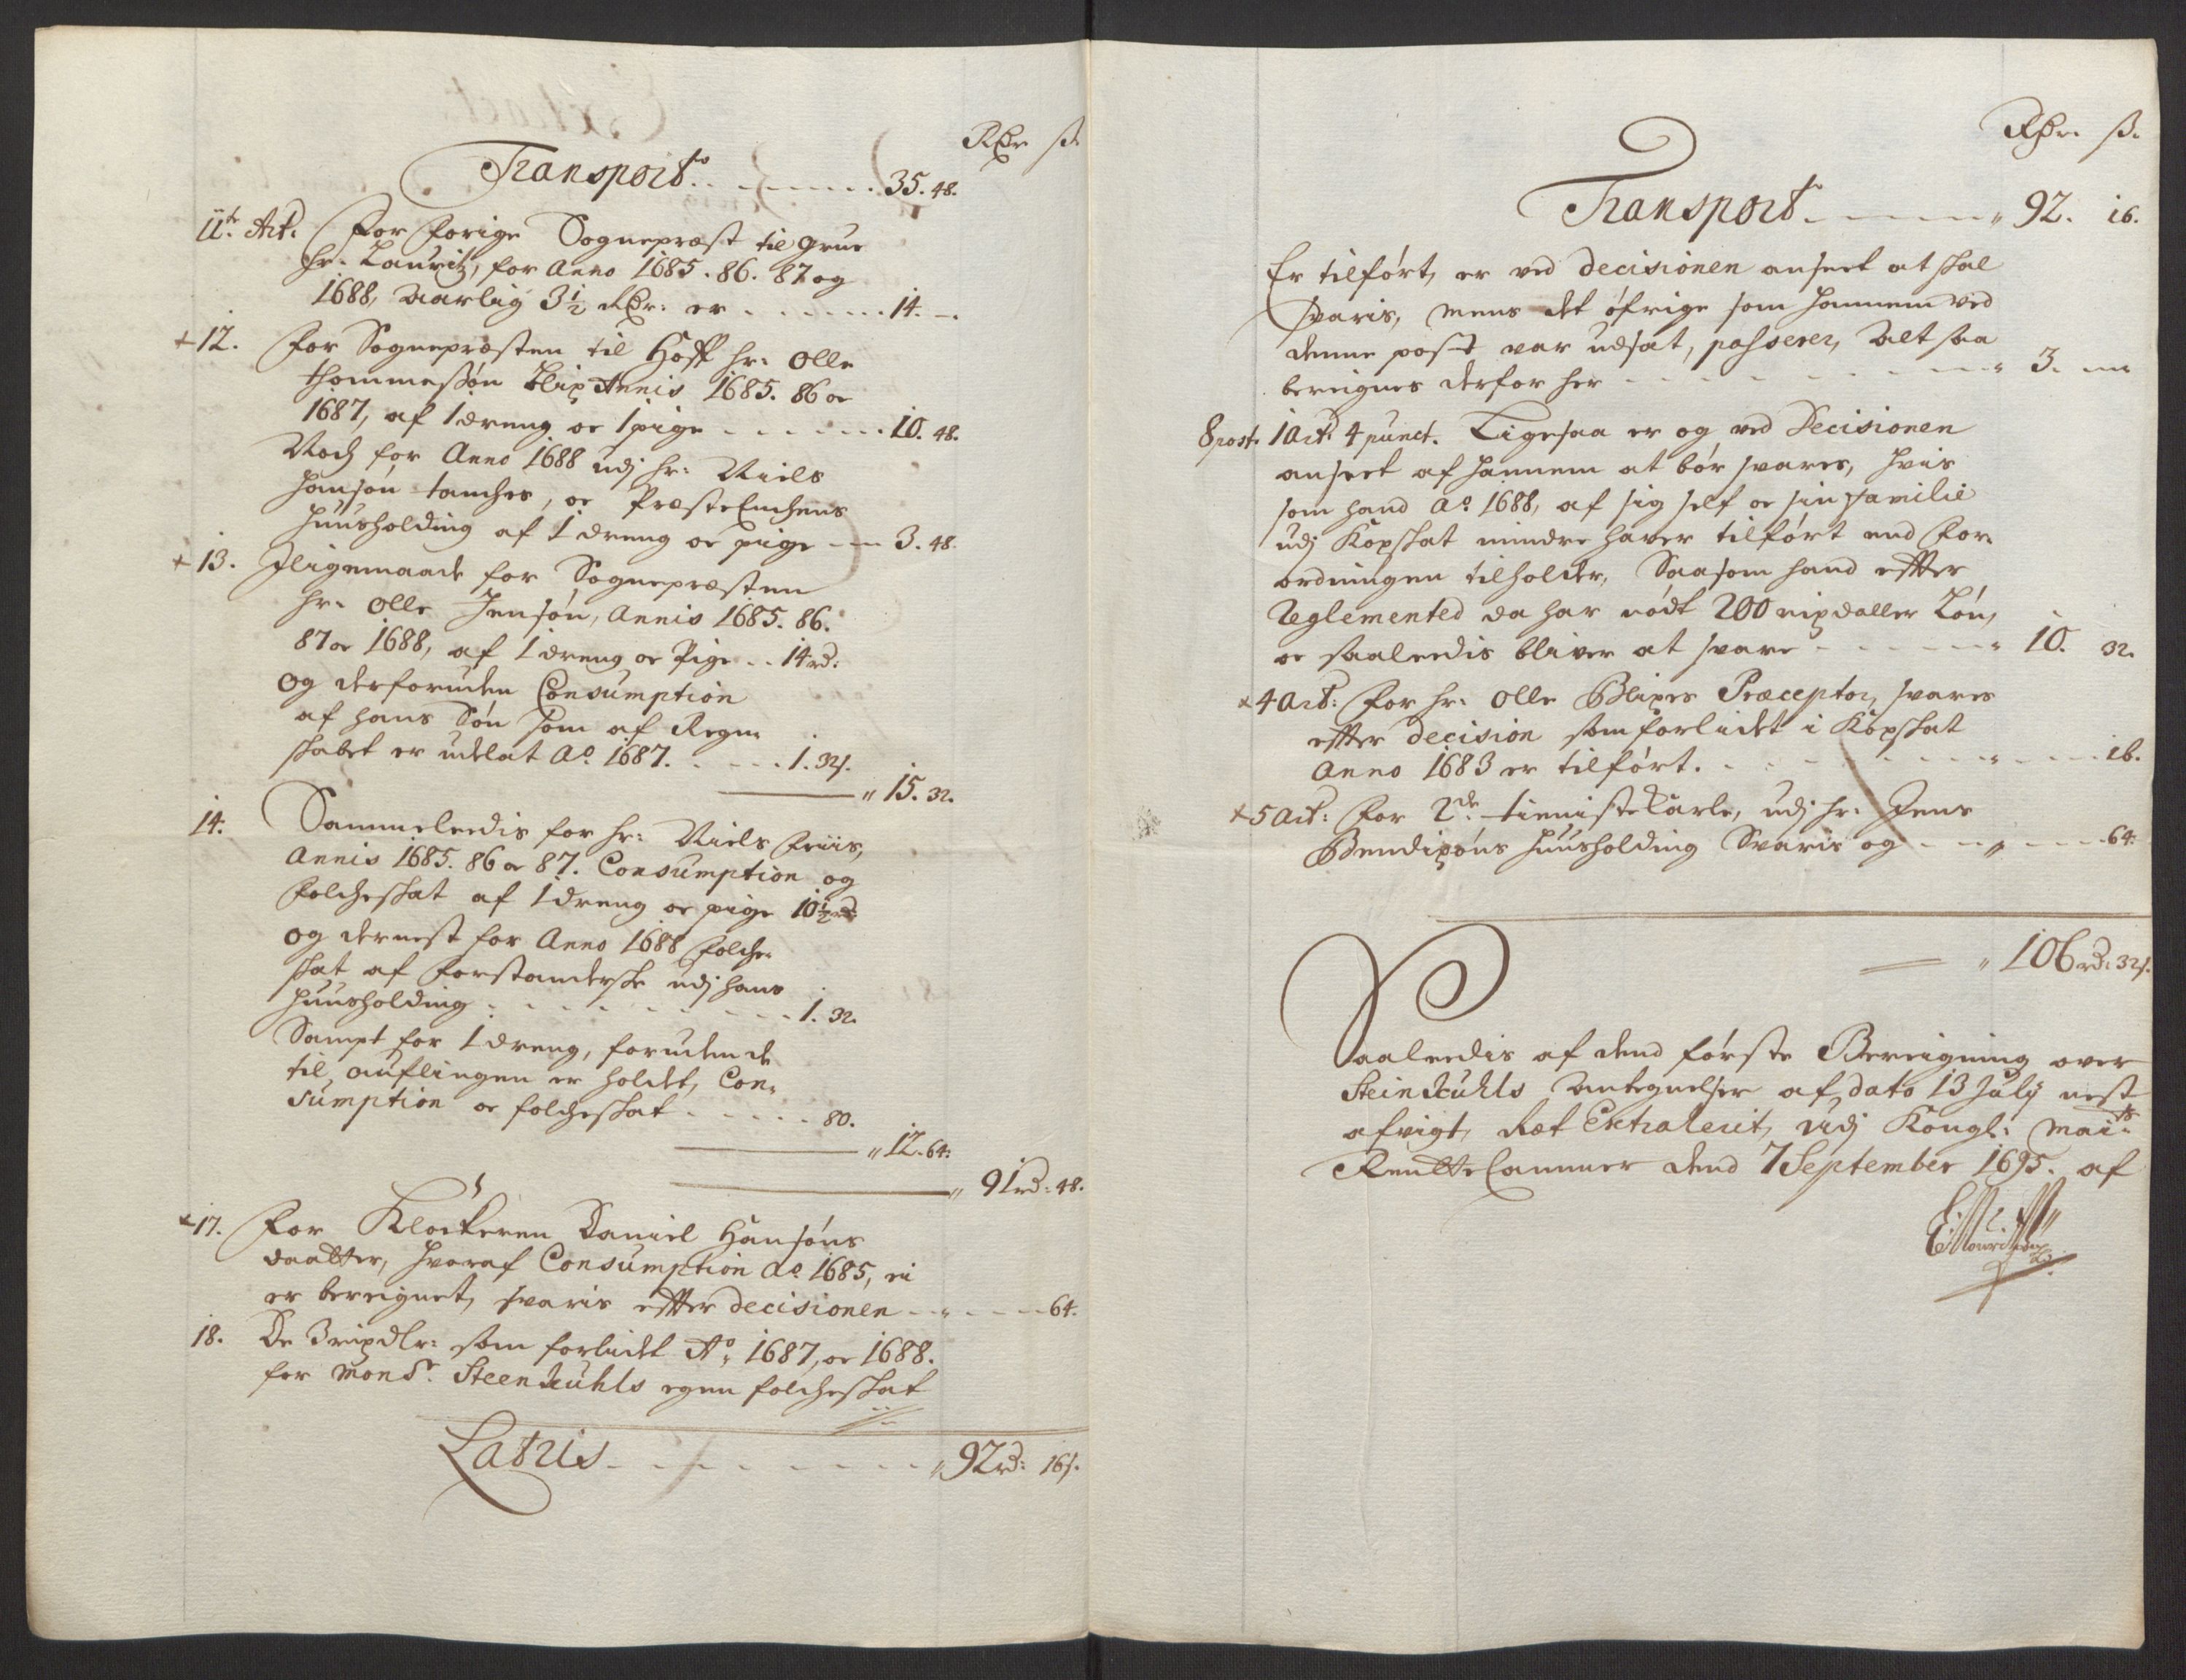 Rdr ß.
Transport. . . . . . . 35. 48.
11te Art. For forige Sognepræst til Grue
hr. Lauritz, for Anno 1685. 86. 87 og
1688, Aarlig 3½ Rdr: er . . . . . . 14. -.
+12. For Sognepræsten til Hoff hr: Olle
Thommesøn Blix Annis 1685. 86 oc
1687, af 1 dreng oc 1 pige - - - - - - 10. 48.
Noch for Anno 1688 udj hr: Niels
Hansøn Tanches, oc Præste Enchens
Huusholding af 1 dreng oc pige - - 3. 48.
+13. Iligemaade for Sognepræsten
hr. Olle Jensøn, Annis 1685. 86.
87 oc 1688, af 1 dreng oc Pige . . 14 rd:
og derforuden Consumption
af hans Søn som af Regn-
skabet er udelat Ao. 1687. . . . . 1. 32ß.
" 15. 32.
14. Sammeledis for hr: Niels Friis,
Annis 1685. 86 oc 87. Consumption og
Folcheskat af 1 dreng oc pige 10½ rd:
og dernest for Anno 1688 Folche-
skat af Forstanderske udj hans
Huusholding . . . . . . . . 1. 32.
Sampt for 1 dreng, foruden de
til auflingen er holdet, Con-
sumption oc folcheskat . . . . . 80.
" 12. 64:
" 91 rd: 48.
+17. For Klockeren Daniel Hansøns
daatter, hvoraf Consumption Ao 1685, ei
er bereignet, svaris effter decisionen - - - - 64.
18. De 3 ripdlr: som forledet Ao. 1687, oc 1688.
for Mons.r Steenkuhls egen folcheskat
Latris . . . . . . . " 92 rd: 16ß.
Rdr. ß.
Transport . - - - - " 92. 16.
Er tilført, er ved Decisionen anseet at skal
svaris, mens det øfrige som hannem ved
denne post var udsat, passerer, Alt saa
bereignes derfor her - - - - - - - 3. -
8 post. 1 Art: 4 punct. Ligesaa er og ved Decisionen
anseet af hannem at bør svares, hvis
som hand Ao. 1688, af sig self oc sin familie
udj Kopskat mindre haver tilført end For-
ordningen tilholder, Saasom hand effter
Reglemented da har nødt 200 ripdaller Løn,
oc saaledis bliver at svare - - - - - " 10. 32.
+4 Art: For hr. Olle Blixes Præceptor, svares
effter decision som forledet i Kopskat
Anno 1683 er tilført. . . . . . . . . 16.
+5 Art: For 2de tieniste Karle, udj hr. Jens
Bendixøns Huusholding Svaris og - - " - - 64.
" 106 rd: 32ß.
Saaledis af dend første Bereigning over
Steinkuhls Antegnelser af dato 13 July nest
afvigt, Ret Extraherit, udj Kongl: Maits
RentteCammer dend 7 September 1695. af